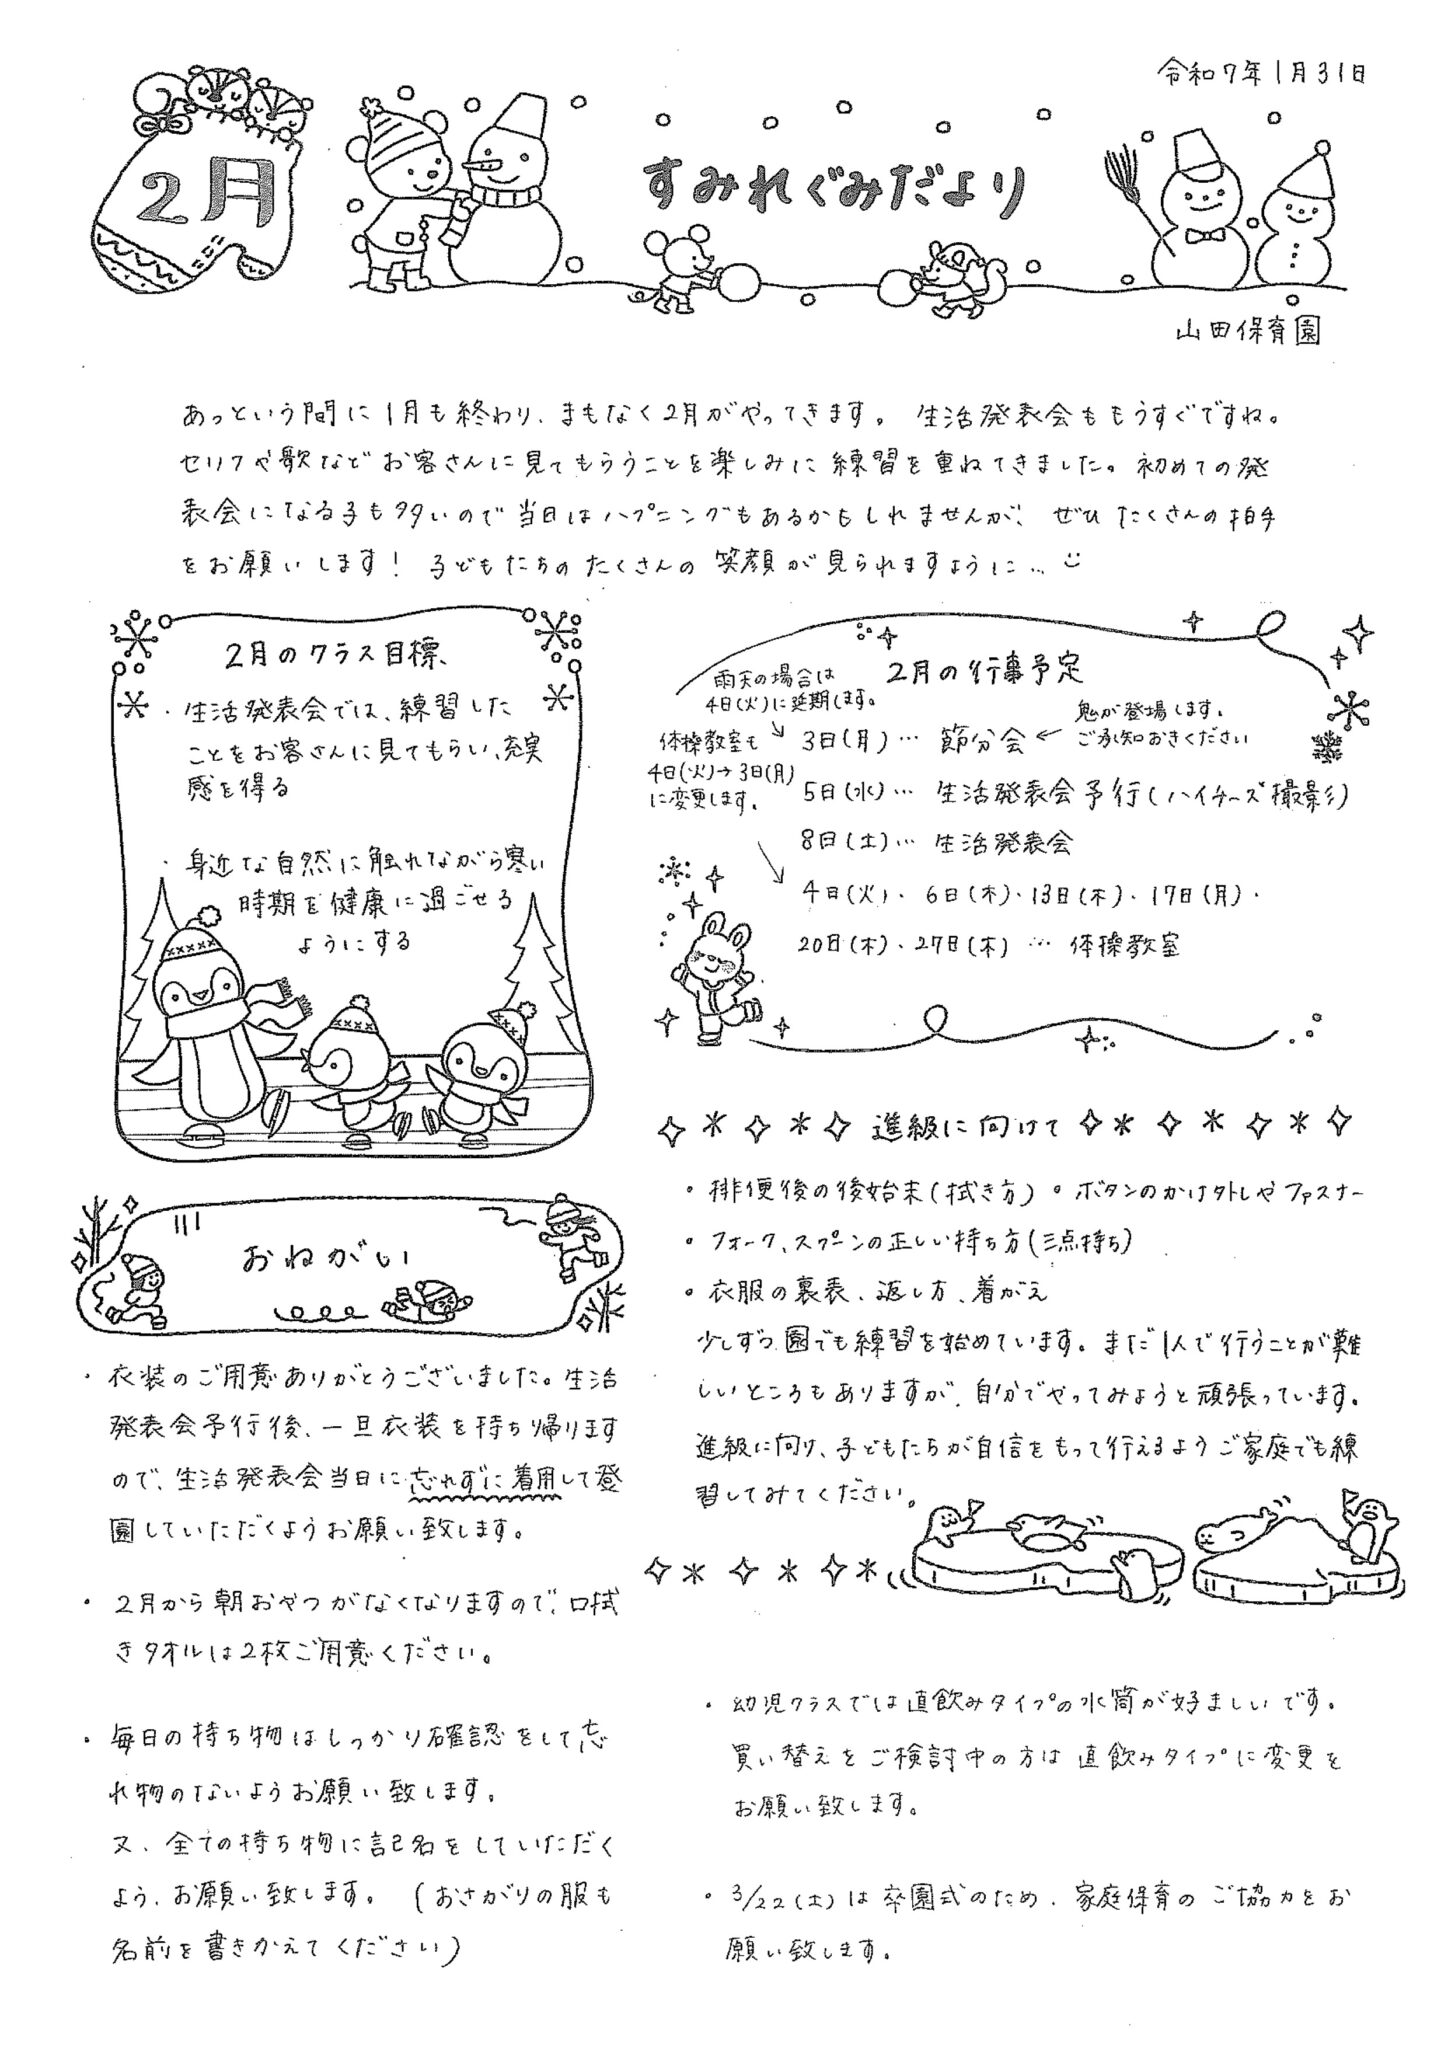 令和7年1月31日
2月
すみれぐみだより
山田保育園
あっという間に1月も終わり、まもなく2月がやってきます。生活発表会ももうすぐですね。
セリフや歌などお客さんに見てもらうことを楽しみに練習を重ねてきました。初めての発
表会になる子も多いので当日はハプニングもあるかもしれませんが、ぜひたくさんの拍手
をお願いします!子どもたちのたくさんの笑顔が見られますように…
2月のクラス目標
・生活発表会では、練習した
ことをお客さんに見てもらい、充実
感を得る
・身近な自然に触れながら寒い
時期を健康に過ごせる
ようにする
2月の行事予定
雨天の場合は
4日(火)に延期します。
3日(月)… 節分会
鬼が登場します。
ご承知おきください
体操教室も
4日(火)→3日(月)
に変更します。
5日(水)… 生活発表会予行(ハイチーズ撮影)
8日(土)… 生活発表会
4日(火)・6日(木)・13日(木)・17日(月)・
20日(木)・27日(木)… 体操教室
進級に向けて
・排便後の後始末(拭き方)・ボタンのかけ外しやファスナー
・フォーク、スプーンの正しい持ち方(三点持ち)
・衣服の裏表、返し方、着がえ
少しずつ園でも練習を始めています。まだ1人で行うことが難
しいところもありますが、自分でやってみようと頑張っています。
進級に向け、子どもたちが自信をもって行えるようご家庭でも練
習してみてください。
おねがい
・衣装のご用意ありがとうございました。生活
発表会予行後、一旦衣装を持ち帰ります
ので、生活発表会当日に忘れずに着用して登
園していただくようお願い致します。
・2月から朝おやつがなくなりますので、口拭
きタオルは2枚ご用意ください。
・毎日の持ち物はしっかり確認をして忘
れ物のないようお願い致します。
又、全ての持ち物に記名をしていただく
よう、お願い致します。(おさがりの服も
名前を書きかえてください)
・幼児クラスでは直飲みタイプの水筒が好ましいです。
買い替えをご検討中の方は直飲みタイプに変更を
お願い致します。
・3/22(土)は卒園式のため、家庭保育のご協力をお
願い致します。